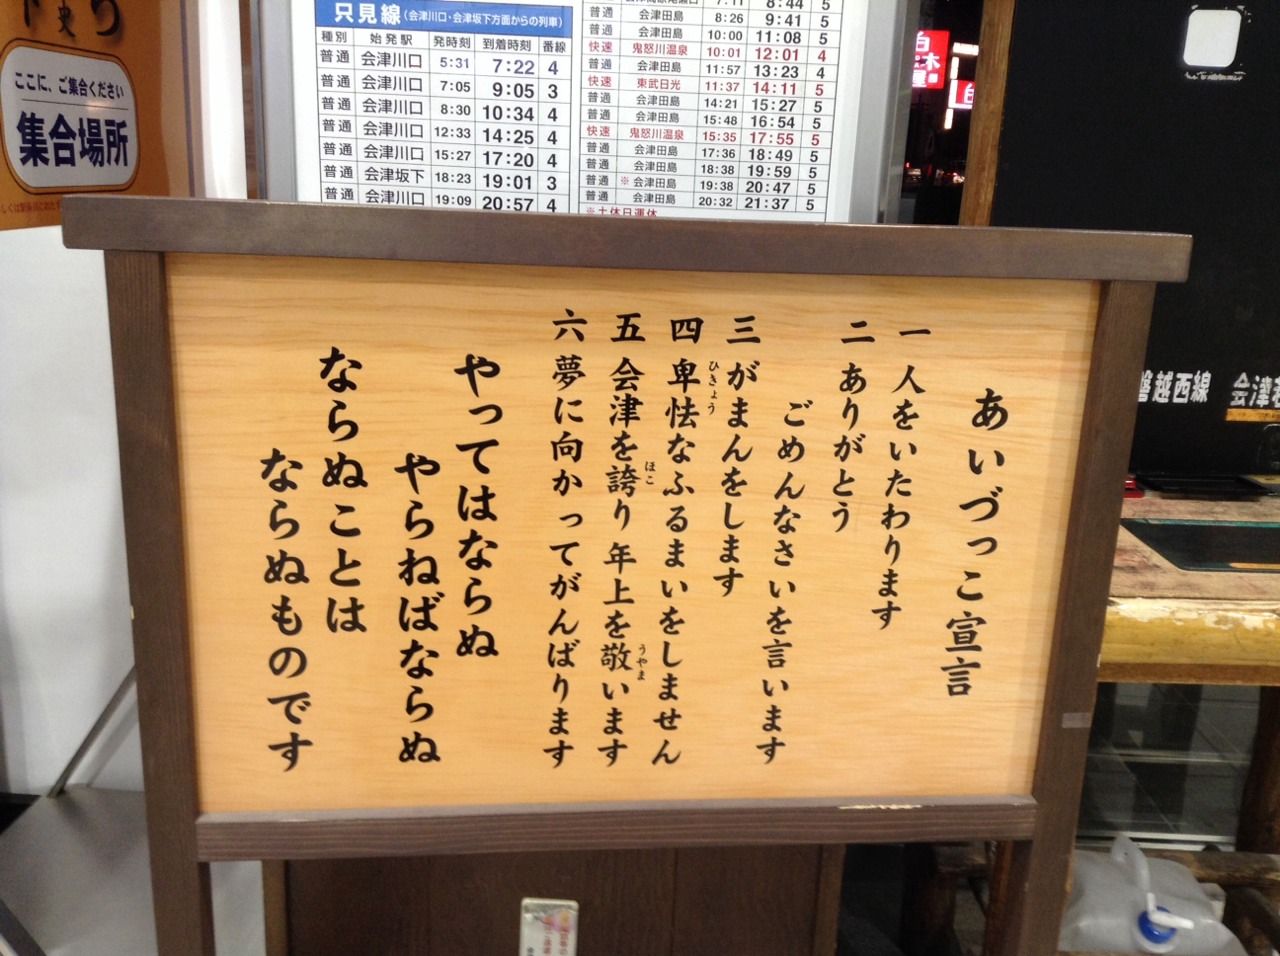 ここに、ご集合ください
集合場所
只見線（会津川口・会津坂下方面からの列車）
種別 始発駅 発時刻 到着時刻 番線
普通 会津川口 5:31 7:22 4
普通 会津川口 7:05 9:05 3
普通 会津川口 8:30 10:34 4
普通 会津川口 12:33 14:25 4
普通 会津川口 15:27 17:20 4
普通 会津坂下 18:23 19:01 3
普通 会津川口 19:09 20:57 4
普通 会津田島 8:26 9:41 5
普通 会津田島 10:00 11:08 5
快速 鬼怒川温泉 10:01 12:01 4
普通 会津田島 11:57 13:23 4
快速 東武日光 11:37 14:11 5
普通 会津田島 14:21 15:27 5
普通 会津田島 15:48 16:54 5
快速 鬼怒川温泉 15:35 17:55 5
普通 会津田島 17:36 18:49 5
普通 会津田島 18:38 19:59 5
普通 ※会津田島 19:38 20:47 5
普通 会津田島 20:32 21:37 5
※土休日運休
磐越西線
あいづっこ宣言
一 人をいたわります
二 ありがとう
ごめんなさいを言います
三 がまんをします
四 卑怯なふるまいをしません
ひきょう
五 会津を誇り 年上を敬います
ほこ
うやま
六 夢に向かってがんばります
やってはならぬ
やらねばならぬ
ならぬことは
ならぬものです